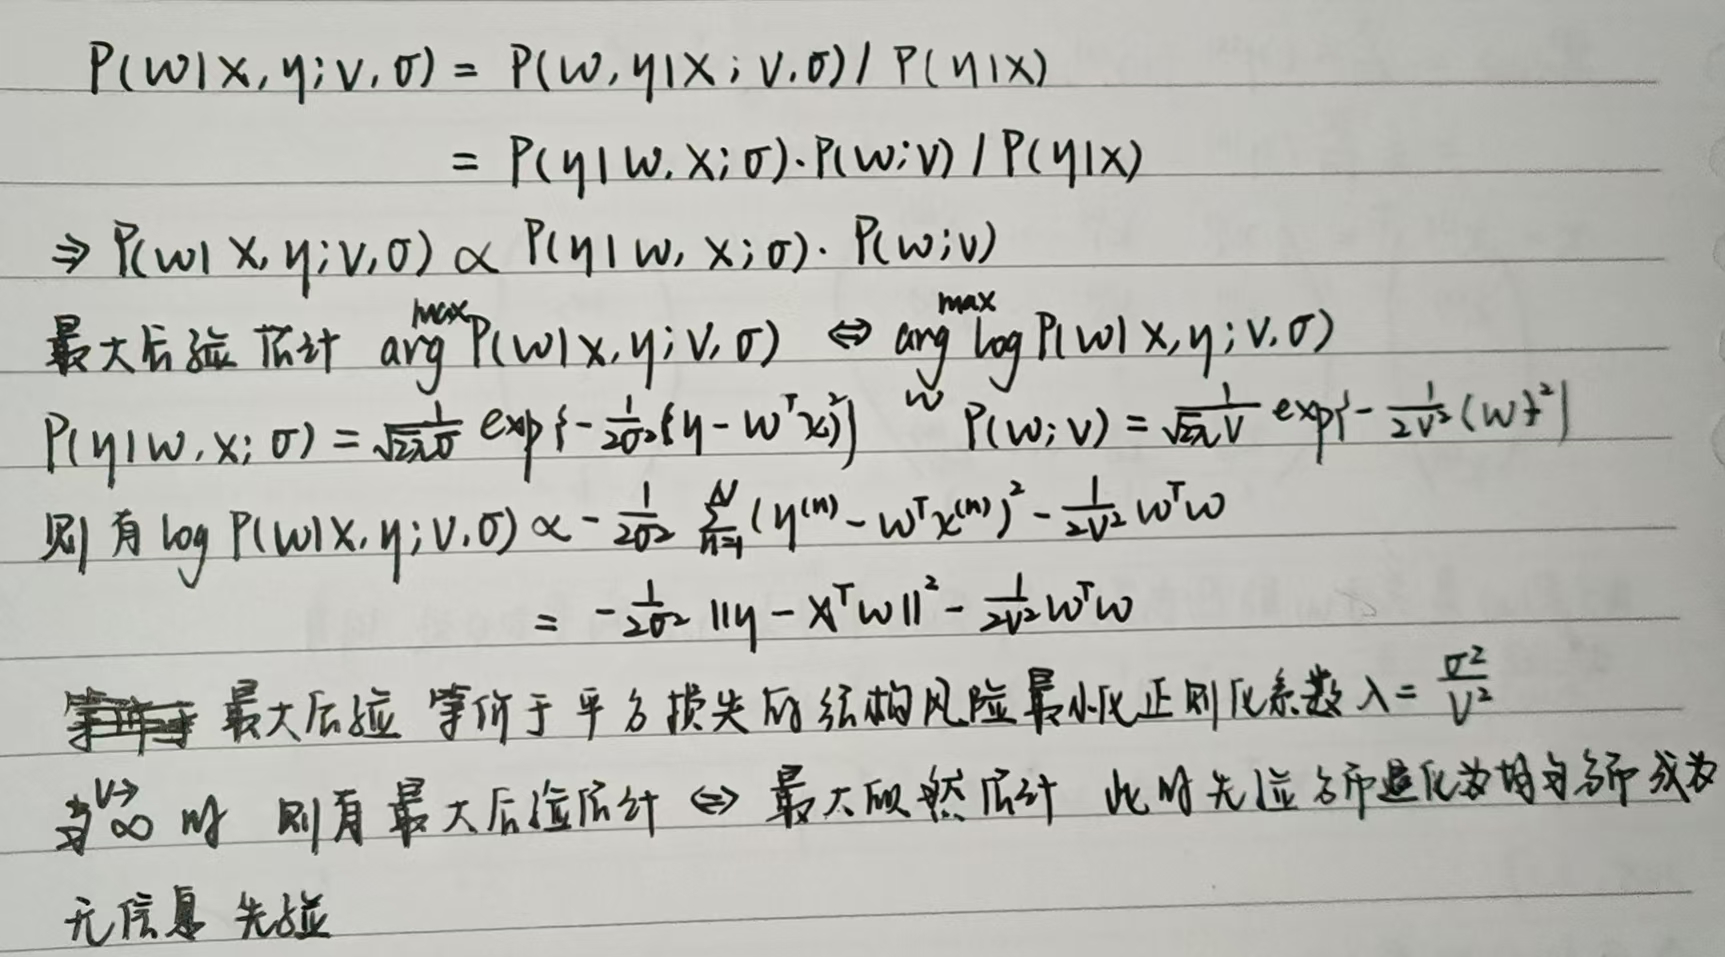 P(w|x,y;v,σ) = P(w,y|x;v,σ) / P(y|x)
= P(y|w,x;σ)·P(w;v) / P(y|x)
⇒ P(w|x,y;v,σ) ∝ P(y|w,x;σ)·P(w;v)
最大后验估计 arg max P(w|x,y;v,σ) ⇔ arg max_w log P(w|x,y;v,σ)
P(y|w,x;σ) = 1/(√2πσ) exp{-1/(2σ²)(y-wᵀx)²} P(w;v) = 1/(√2πv) exp{-1/(2v²)(w)²}
则有 log P(w|x,y;v,σ) ∝ -1/(2σ²) Σ_{n=1}^{N} (y⁽ⁿ⁾-wᵀx⁽ⁿ⁾)² - 1/(2v²) wᵀw
= -1/(2σ²) ||y-xᵀw||² - 1/(2v²) wᵀw
最大后验 等价于平方损失的结构风险最小化正则化系数 λ = σ²/v²
当v→∞时 则有最大后验估计 ⇔ 最大似然估计 此时先验分布退化为均匀分布成为
无信息先验